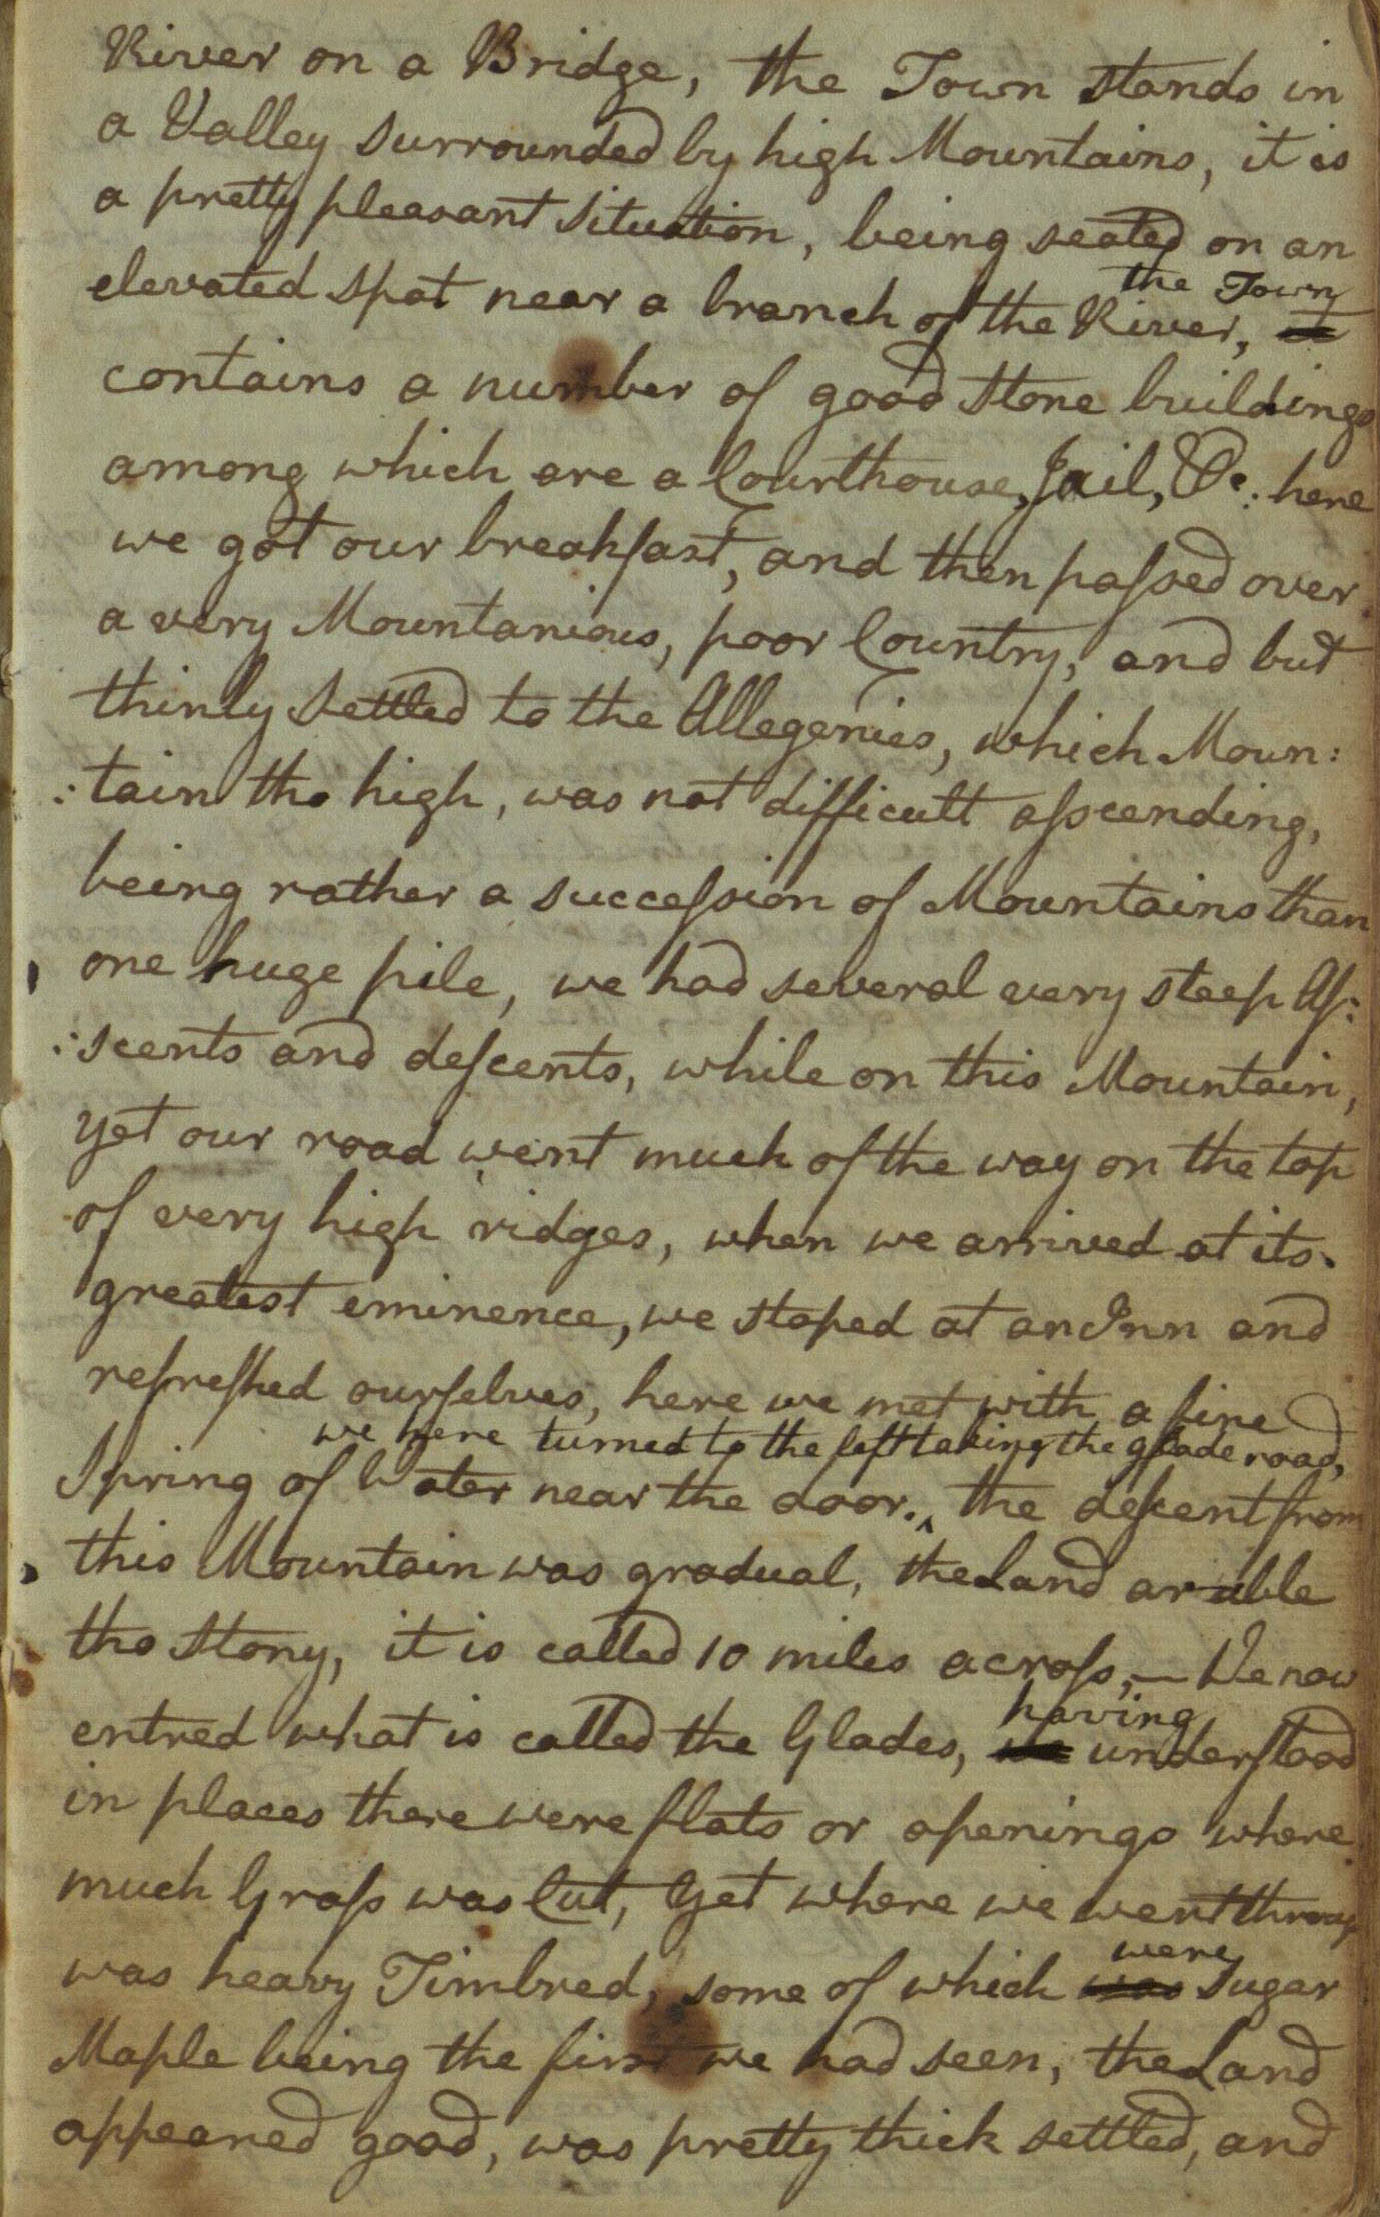 River on a Bridge, the Town stands in
a Valley surrounded by high Mountains, it is
a pretty pleasant situation, being seated on an
the Town
elevated spot near a branch of the River, it
contains a number of good stone buildings
among which are a Courthouse, Jail, &c: here
we got our breakfast, and then paſsed over
a very Mountanious, poor Country, and but
thinly settled to the Allegenies, which Moun:
:tain tho high, was not difficult aſscending,
being rather a succeſsion of Mountains than
one huge pile, we had several very steep Aſ:
:scents and deſcents, while on this Mountain,
yet our road went much of the way on the top
of very high ridges, when we arrived at its
greatest eminence, we stoped at an Inn and
refreſhed ourſelves, here we met with a fine
we here turned to the left taking the glade road,
Spring of Water near the door. ‸ the deſcent from
this Mountain was gradual, the Land arable
tho stony, it is called 10 miles acroſs,— We now
having
entred what is called the Glades, we underſtood
in places there were flats or openings where
much Graſs was Cut, yet where we went throug
were
was heavy Timbred, some of which was Sugar
Maple being the first we had seen, the Land
appeared good, was pretty thick settled, and